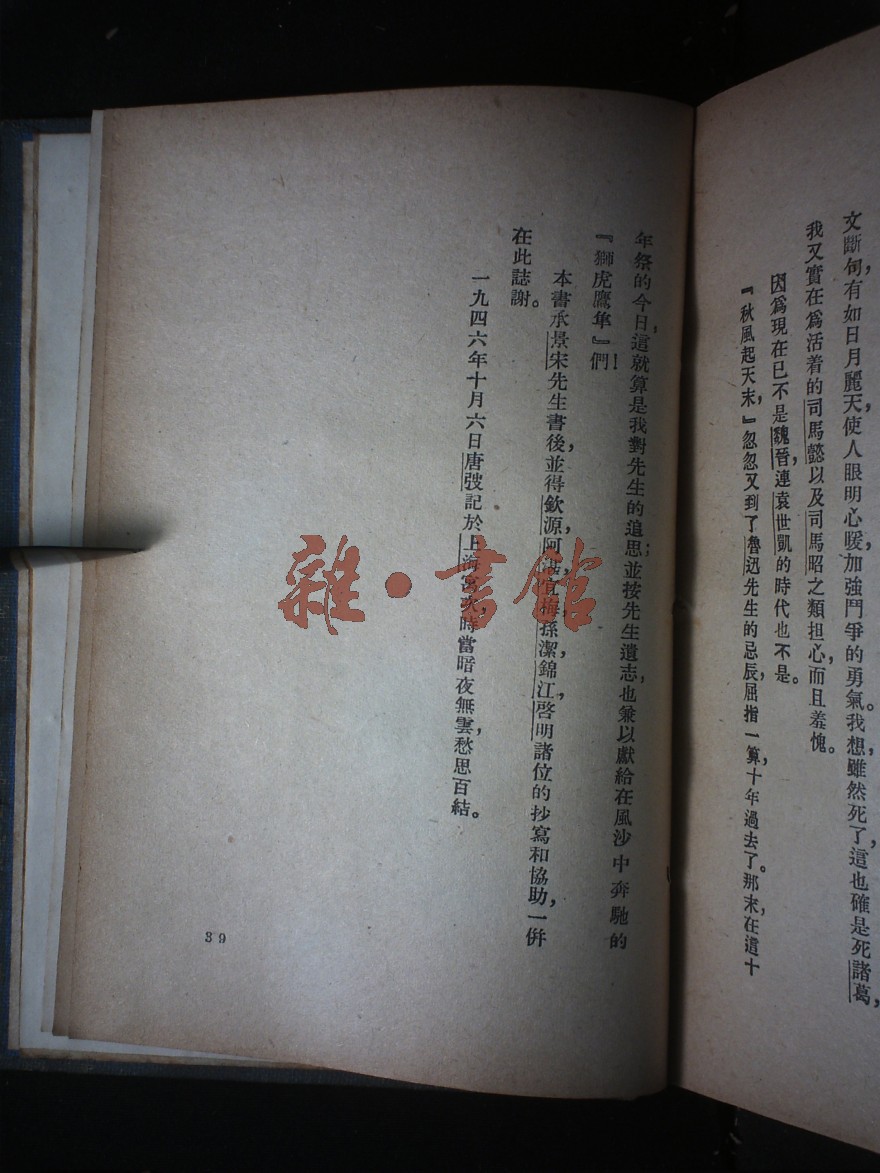 文斷句，有如日月麗天，使人眼明心暖，加強鬥爭的勇氣。我想，雖然死了，這也確是死諸葛，
我又實在為活着的司馬懿以及司馬昭之類担心，而且羞愧。
因為現在已不是魏晉，連袁世凱的時代也不是。
『秋風起天末，』忽忽又到了魯迅先生的忌辰，屈指一算，十年過去了。那末，在這十
年祭的今日，這就算是我對先生的追思；並按先生遺志，也兼以獻給在風沙中奔馳的
『獅虎鷹隼』們！
本書承景宋先生書後，並得欽源，阿湛，宜梅，孫潔，錦江，啓明諸位的抄寫和協助，一併
在此誌謝。
一九四六年十月六日唐弢記於上海寓次，時當暗夜無雲，愁思百結。
39
雜·書館